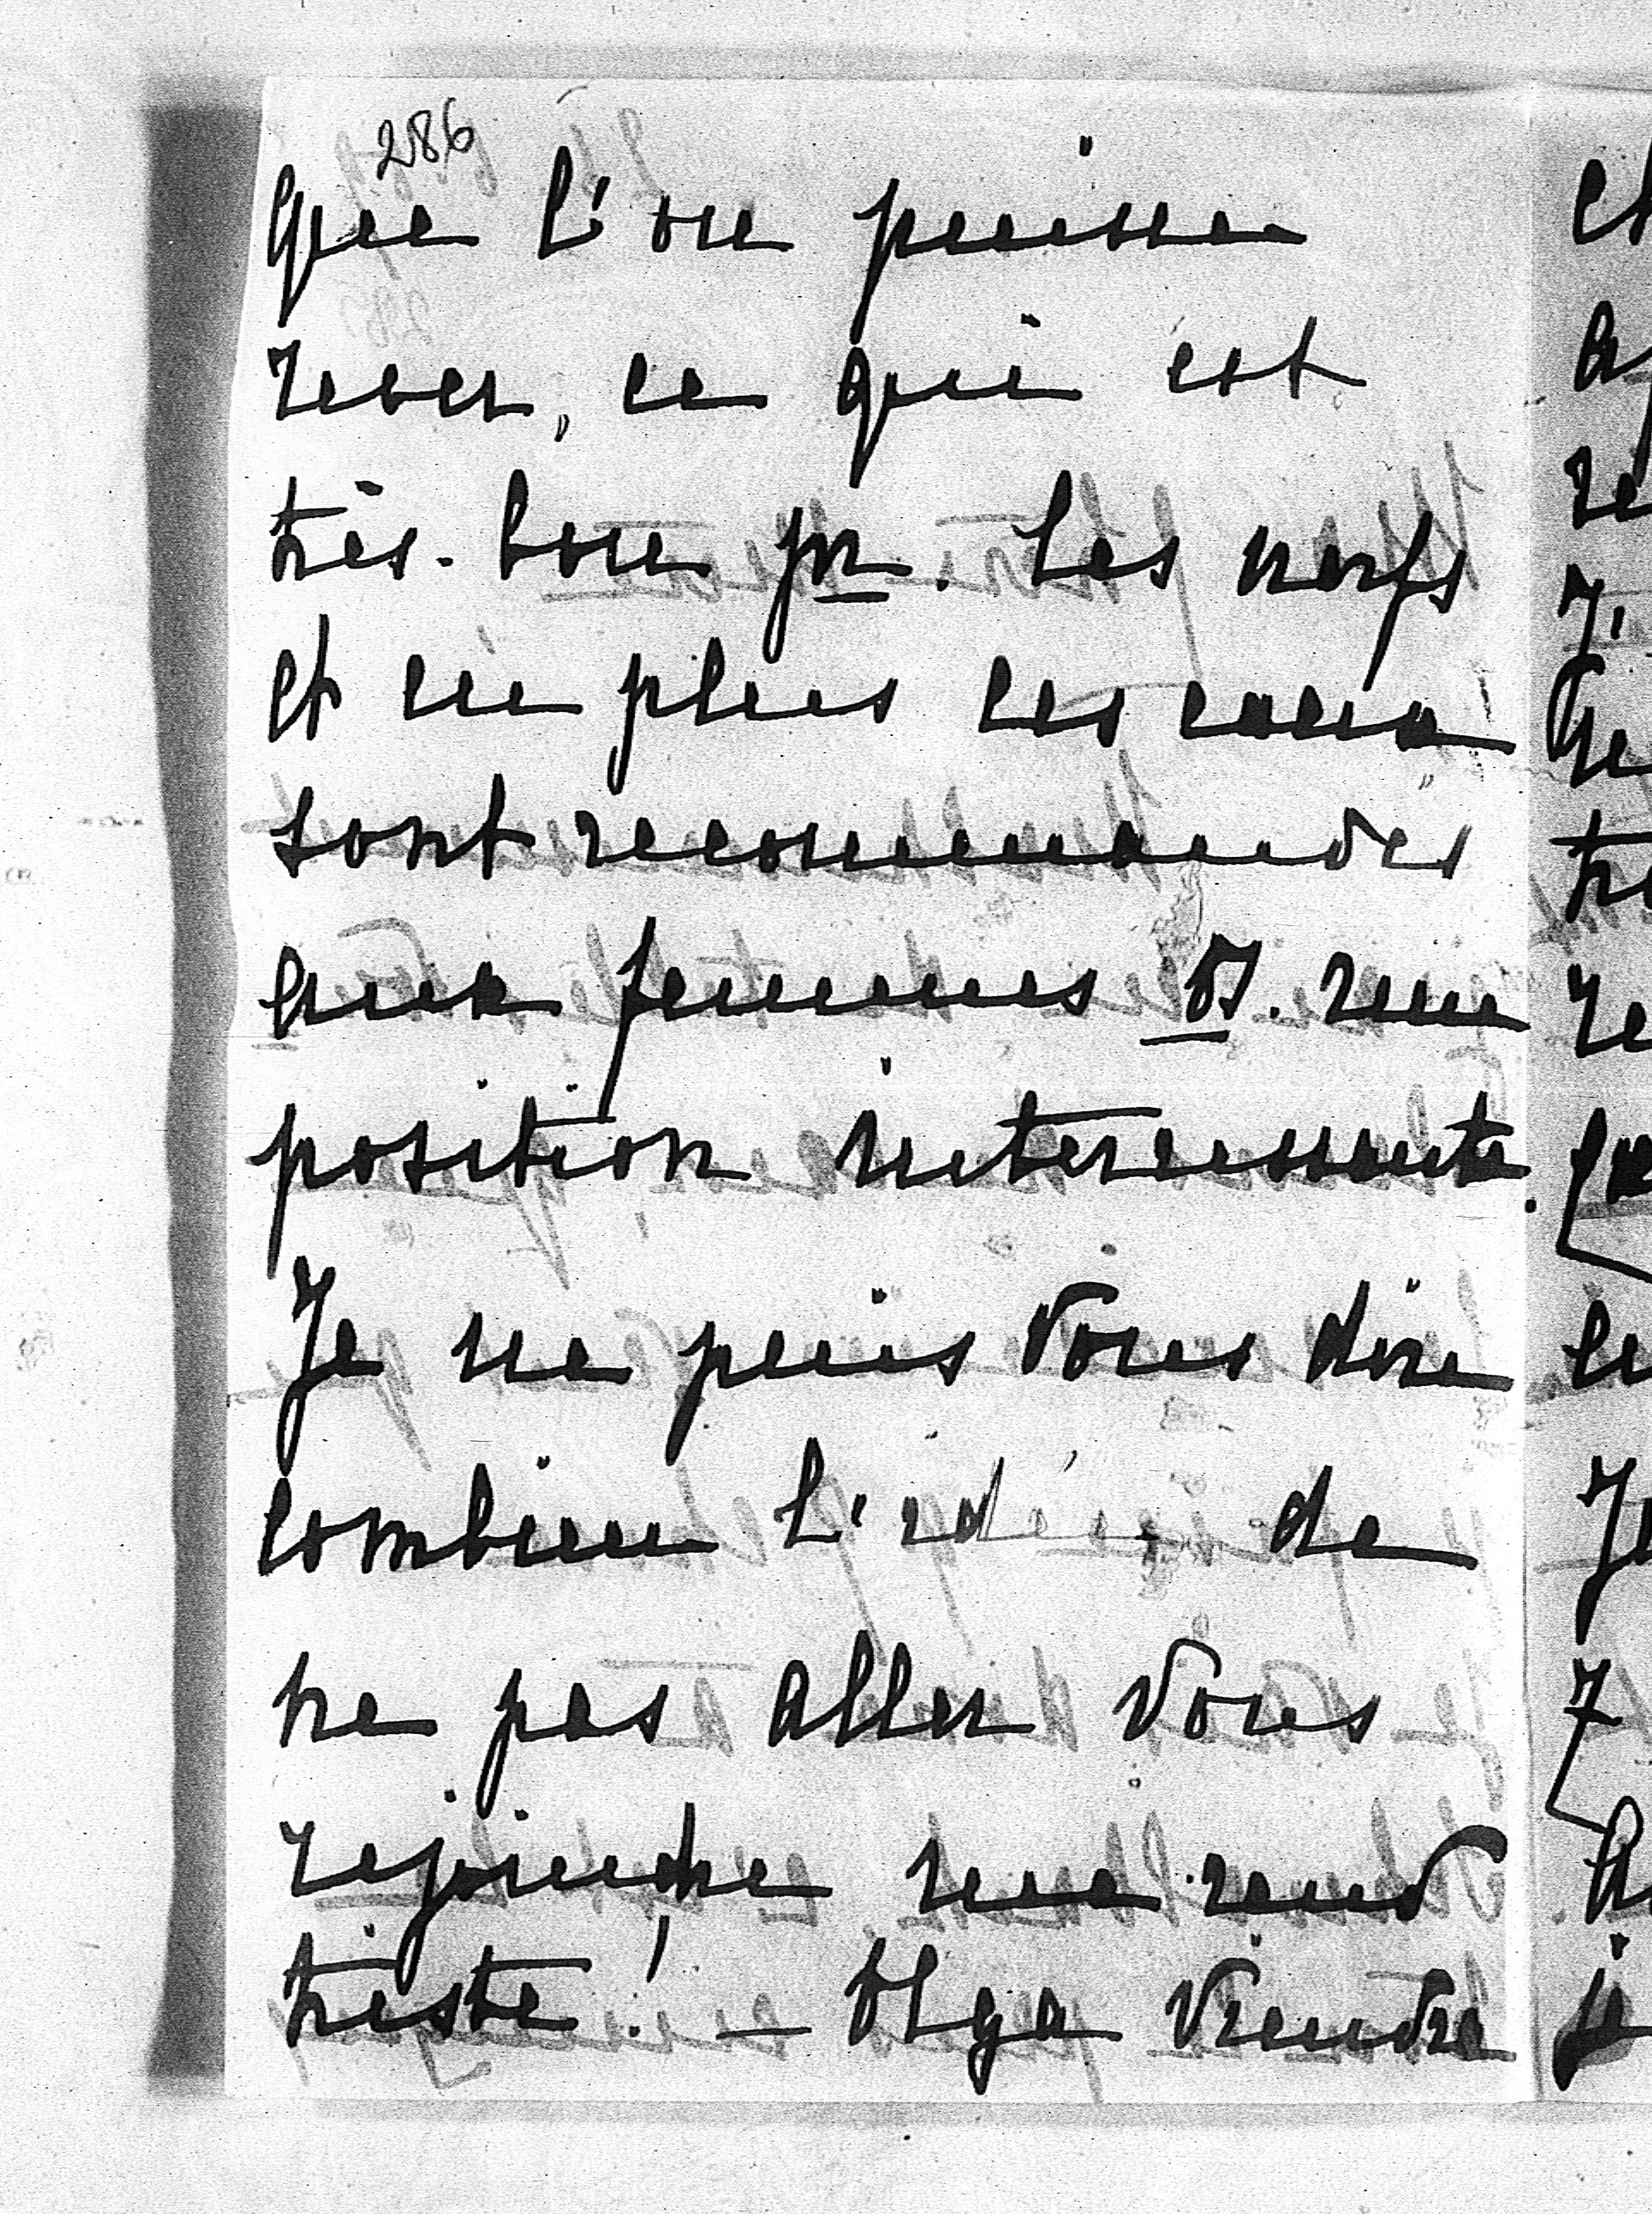 286
que l'on puisse
rever, ce qui est
très-bon pr. les nerfs
et en plus ces eaux
sont recommandés
aux femmes ds. une
position interessante.
Je ne puis Vous dire
combien l'idée de
ne pas aller Vous
rejoindre me rend
triste! — Olga Viendra